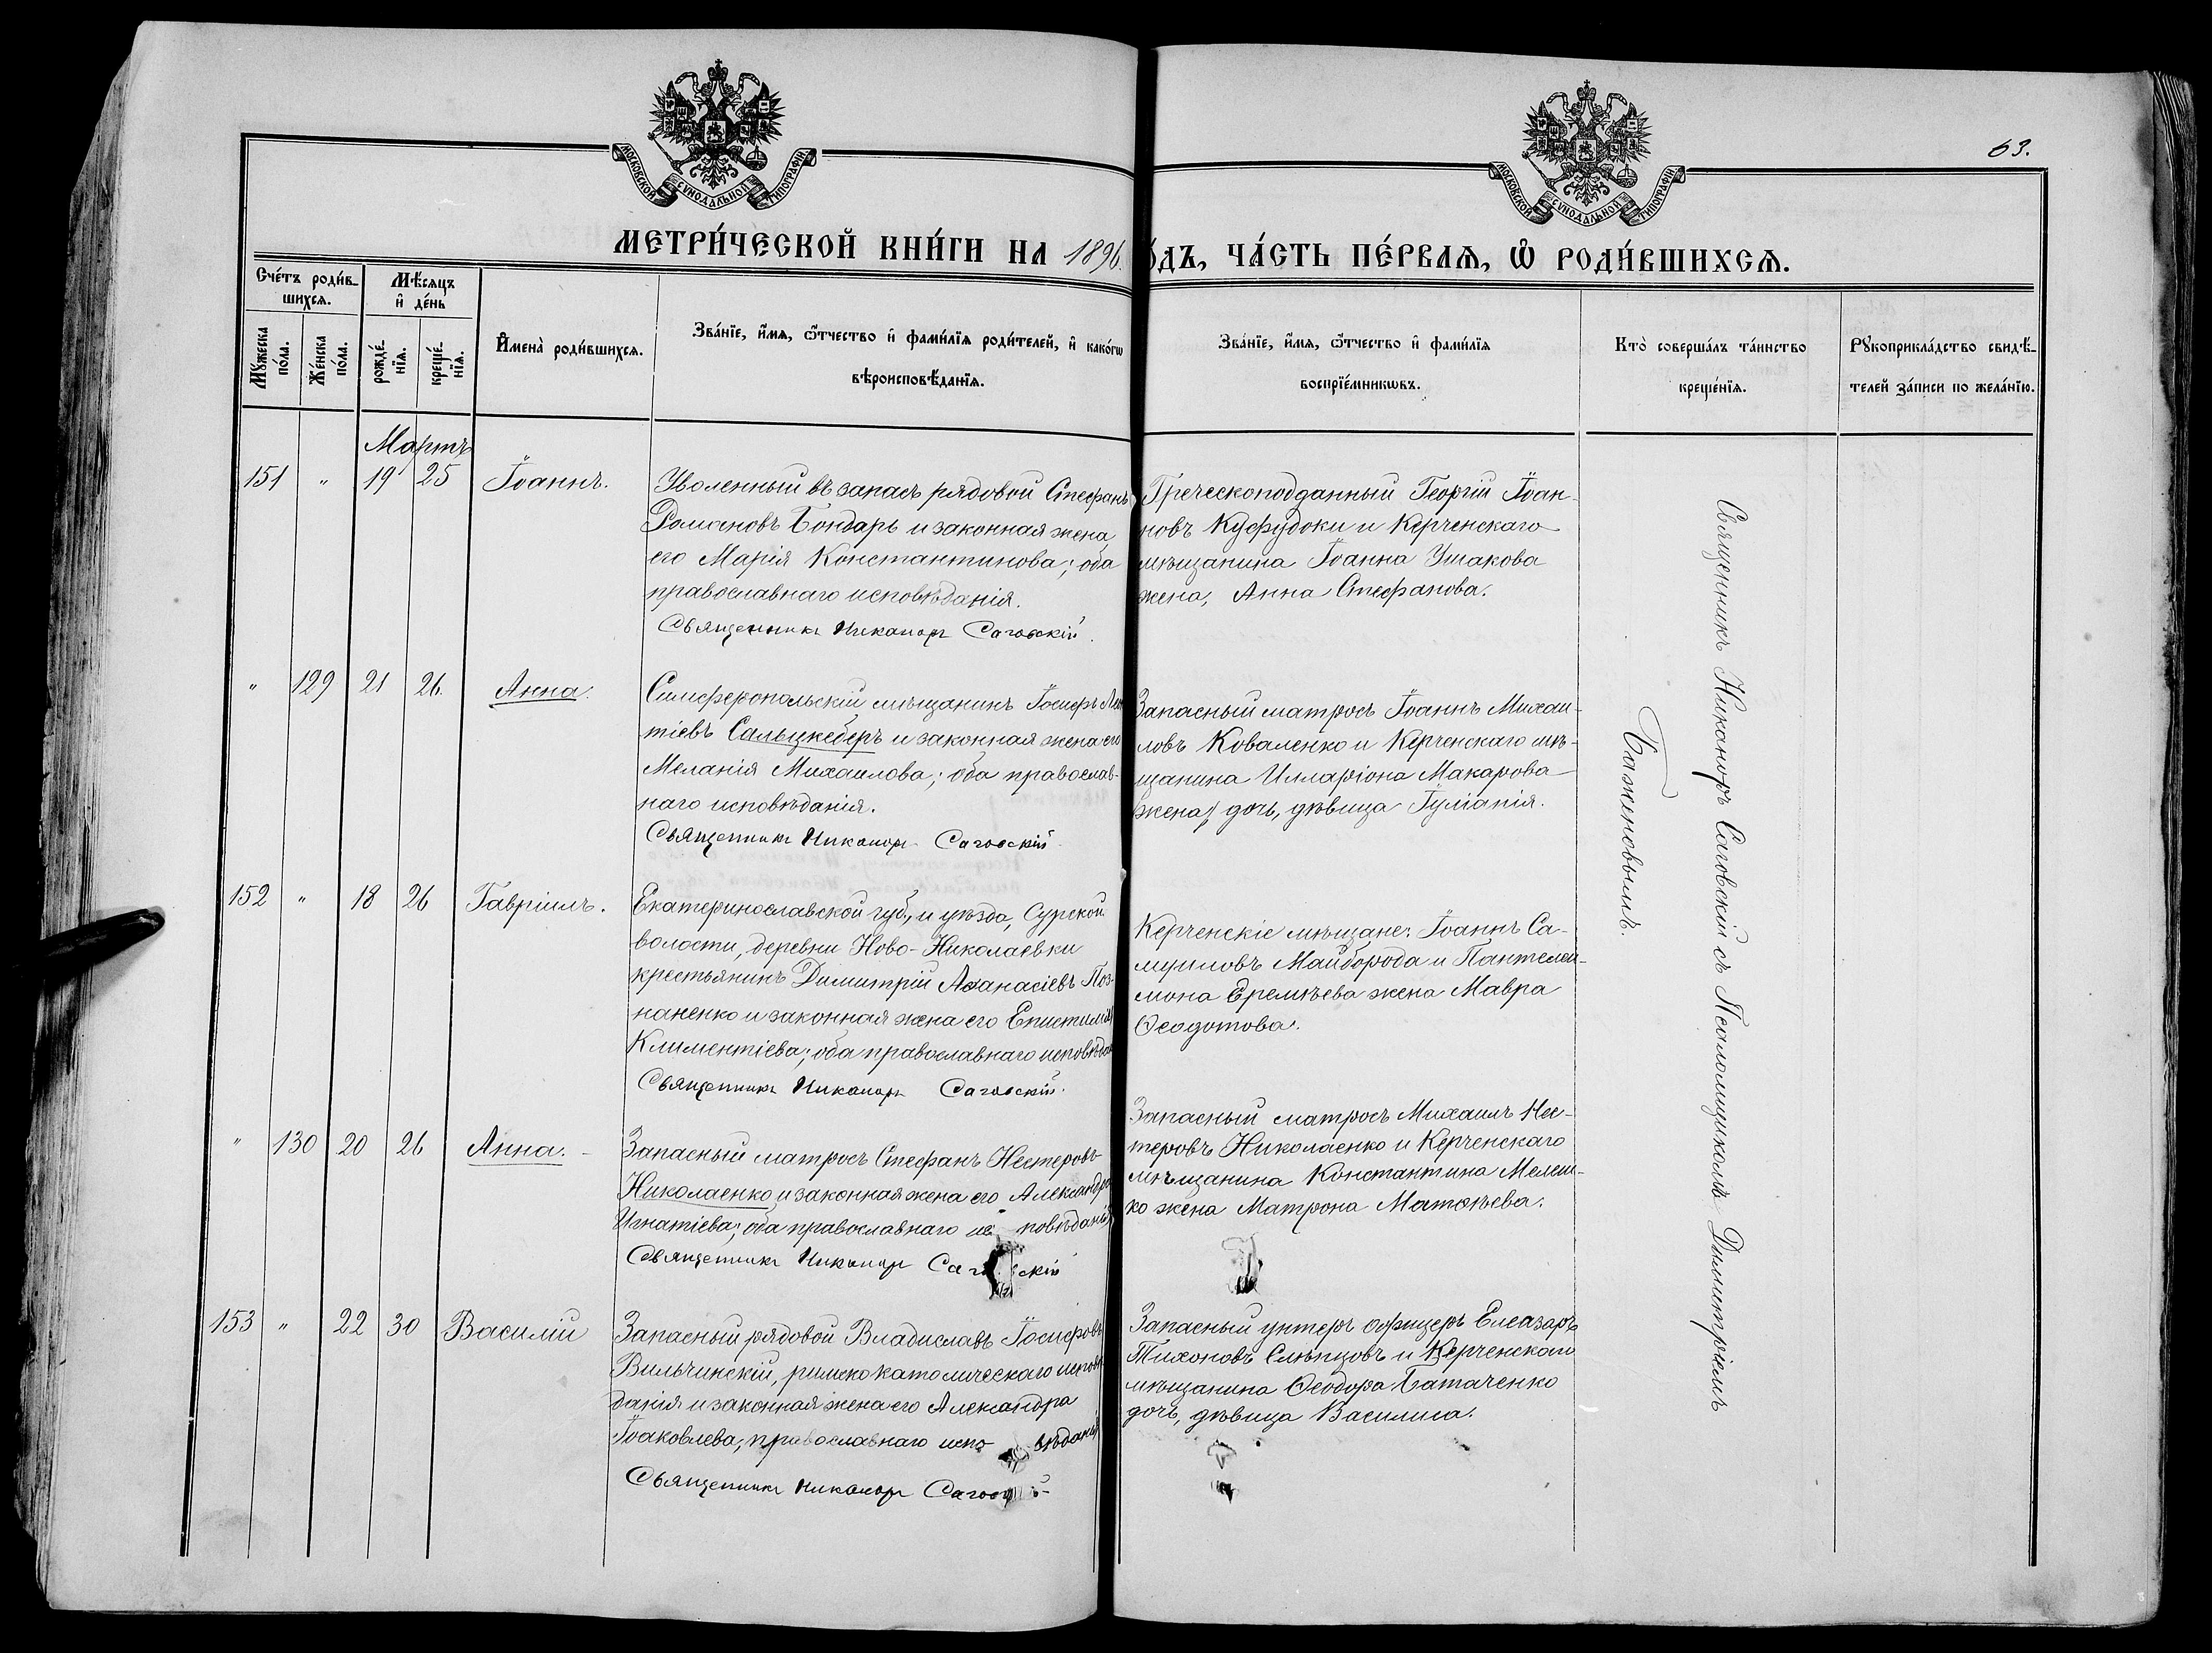 МОСКОВСКОЙ СѴНОДАЛЬНОЙ ТИПОГРАФІИ
МОСКОВСКОЙ СѴНОДАЛЬНОЙ ТИПОГРАФІИ
63.
МЕТРИ́ЧЕСКОЙ КНИ́ГИ НА 1896.
О́ДЪ, ЧА́СТЬ ПЕ́РВАѦ, Ѡ҆ РОДИ́ВШИХСѦ.
Сче́тъ роди́в-
шихсѧ.
Мꙋ́жеска
по́ла.
Же́нска
по́ла.
Мѣ́сѧцъ
и҆ де́нь
рожде́-
нїѧ.
креще́-
нїѧ.
И҆мена̀ роди́вшихсѧ.
Зва́нїе, и҆́мѧ, ѻ҆́тчество и҆ фами́лїѧ роди́телей, и҆ како́гѡ
вѣроисповѣ́данїѧ.
Зва́нїе, и҆́мѧ, ѻ҆́тчество и҆ фами́лїѧ
воспрїе́мникѡвъ.
Кто̀ соверша́лъ та́инство
креще́нїѧ.
Рꙋкоприкла́дство свидѣ́-
телей за́писи по жела́нїю.
Мартъ
151 " 19 25 Іоаннъ.
Уволенный въ запасъ рядовой Стефанъ
Романовъ Бондарь и законная жена
его Марія Константинова; оба
православнаго исповѣданія.
Священникъ Никаноръ Саговскій.
Греческоподданный Георгій Іоан-
новъ Куфудоки и Керченскаго
мѣщанина Іоанна Ушакова
жена, Анна Стефанова.
" 129 21 26. Анна.
Симферопольскій мѣщанинъ Іосифъ
тіевъ Сальцкеберъ и законная жена его
Меланія Михаилова; оба православ-
наго исповѣданія.
Священникъ Никаноръ Саговскій
Запасный матросъ Іоаннъ Михаи-
ловъ Коваленко и Керченскаго мѣ-
щанина Илларіона Макарова
жена, дочь, дѣвица Іуліанія.
152 " 18 26 Гавріилъ.
Екатеринославской губ., и уѣзда, Сурской
волости, деревни Ново-Николаевки
крестьянинъ Димитрій Аѳанасіевъ Поз-
наненко и законная жена его Епистимія
Климентіева; оба православнаго исповѣда
Священникъ Никаноръ Саговскій.
Керченскіе мѣщане: Іоаннъ Са-
муиловъ Майборода и Пантелеи-
мона Еремѣева жена Мавра
Ѳеодотова.
" 130 20 26 Анна.
Запасный матросъ Стефанъ Нестеровъ
Николаенко и законная жена его Александра
Игнатіева; оба православнаго ис повѣданія
Священникъ Никаноръ Саг скій
Запасный матросъ Михаилъ Нес-
теровъ Николаенко и Керченскаго
мѣщанина Константина Мелеш-
ко жена Матрона Матѳѣева.
153 " 22 30 Василій
Запасный рядовой Владиславъ Іосифовъ
Вильчинскій, римско католическаго исповѣ
данія и законная жена его Александра
Іоаковлева, православнаго испо вѣданія
Священникъ Никаноръ Саговскій
Запасный унтеръ офицеръ Елеазаръ
Тихоновъ Слѣпцовъ и Керченскаго
мѣщанина Ѳеодора Батаченко
дочь, дѣвица Василиса.
Священникъ Никаноръ Саговскій съ Псаломщикомъ Димитріемъ
Баженовымъ.